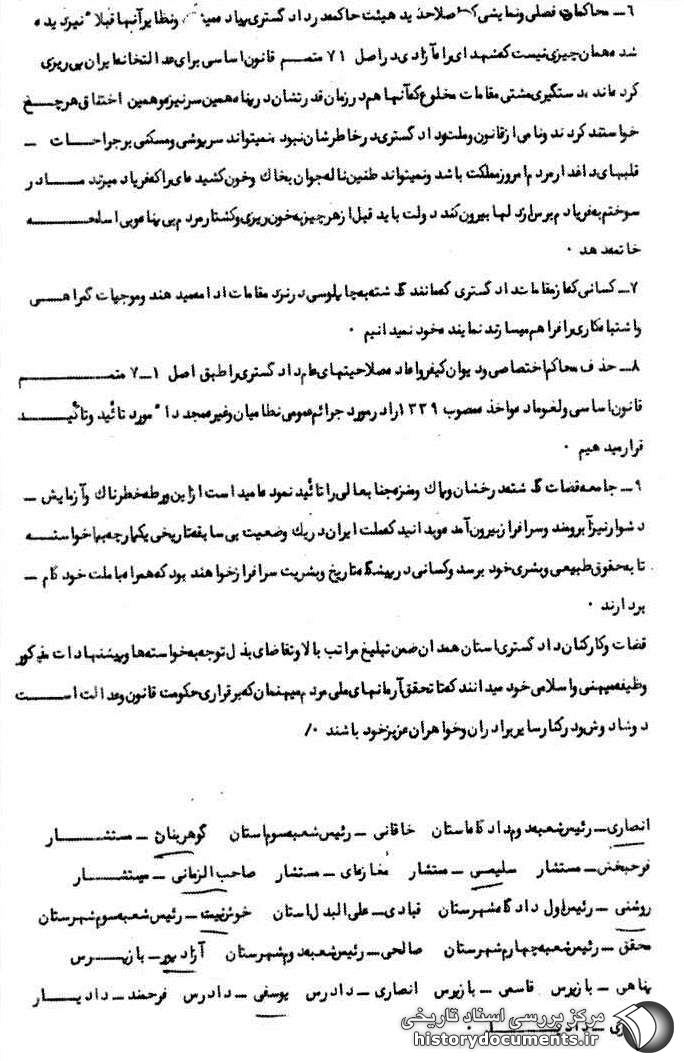 ۶ــ محاکمات فصلی و نمایشی که اصلاحدید هیئت حاکمه در دادگستری بیاد و نظایر آنها قبلاً نیز دیده
شد همان چیزی نیست که شهدای راه آزادی در اصل ۷۱ متمــم قانون اساسی برای عدالتخانه ایران پی ریزی
کرده اند، دستگیری مشتی مقامات مخلوع که آنها هم در زمان قدرتشان در پناه همین سرنیزه و همین اختناق هر چــه
خواستند کردند و نامی از قانون و ملت و دادگستری در خاطرشان نبود نمیتواند سرپوشی و مسکنی بر جراحــات ــ
قلبهای داغدار مردم امروز مملکت باشد و نمیتواند طنین ناله جوان بخاک و خون کشیده ای را که فریاد میزند مــادر
سوختم به فریادم برس از دلها بیرون کند دولت باید قبل از هر چیز به خون ریزی و کشتار مردم بی پناه و بی اسلحــه
خاتمه دهد ۰
۷ــ کسانی که از مقامات دادگستری که مانند گذشته به چاپلوسی در نزد مقامات ادامه میدهند و موجبات گمراهــی
و اشتباهکاری را فراهم میسازند نماینده خود نمیدانیم ۰
۸ــ حذف محاکم اختصاصی و دیوان کیفر و اعاده صلاحیتهای عام دادگستری را طبق اصل ۷۱ــ متمــم
قانون اساسی و لغو ماده واحده مصوب ۱۳۳۹ را در مورد جرائم عمومی نظامیان و غیره مجدداً مورد تائید و تاکیــد
قرار میدهیم ۰
۹ــ جامعه قضات گذشته درخشان و پاک و منزه جنابعالی را تائید نموده امید است از این ورطه خطرناک و آزمایش ــ
دشوار نیز آبرومند و سرافراز بیرون آمده و بدانید که ملت ایران در یک وضعیت بی سابقه تاریخی یکپارچه بپا خواستــه
تا به حقوق طبیعی و بشری خود برسد و کسانی در پیشگاه تاریخ و بشریت سرافراز خواهند بود که همراه با ملت خود گام ــ
بردارند ۰
قضات و کارکنان دادگستری استان همدان ضمن تبلیغ مراتب بالا و تقاضای بذل توجه به خواسته ها و پیشنهادات مذکور
وظیفه میهنی و اسلامی خود میدانند که تا تحقق آرمانهای ملی مردم میهنمان که برقراری حکومت قانون و عدالت اســت
دوشادوش و در کنار سایر برادران و خواهران عزیز خود باشند ۰/
انصاری ــ رئیس شعبه دوم دادگاه استان خاقانی ــ رئیس شعبه سوم استان گوهربنان ــ مستشــار
فرحبخش ــ مستشار سلیمی ــ مستشار مغازه ای ــ مستشار صاحب الزمانی ــ مستشــار
روشنی ــ رئیس اول دادگاه شهرستان قبادی ــ علی البدل استان خوش نیت ــ رئیس شعبه سوم شهرستان
محقق ــ رئیس شعبه چهارم شهرستان صالحی ــ رئیس شعبه دوم شهرستان آزادپور ــ بازپــرس
پناهی ــ بازپرس قاسمی ــ بازپرس انصاری ــ دادرس یوسفی ــ دادرس فرحمند ــ دادیــار
ری ــ دادیــار ۰
مرکز بررسی اسناد تاریخی
historydocuments.ir